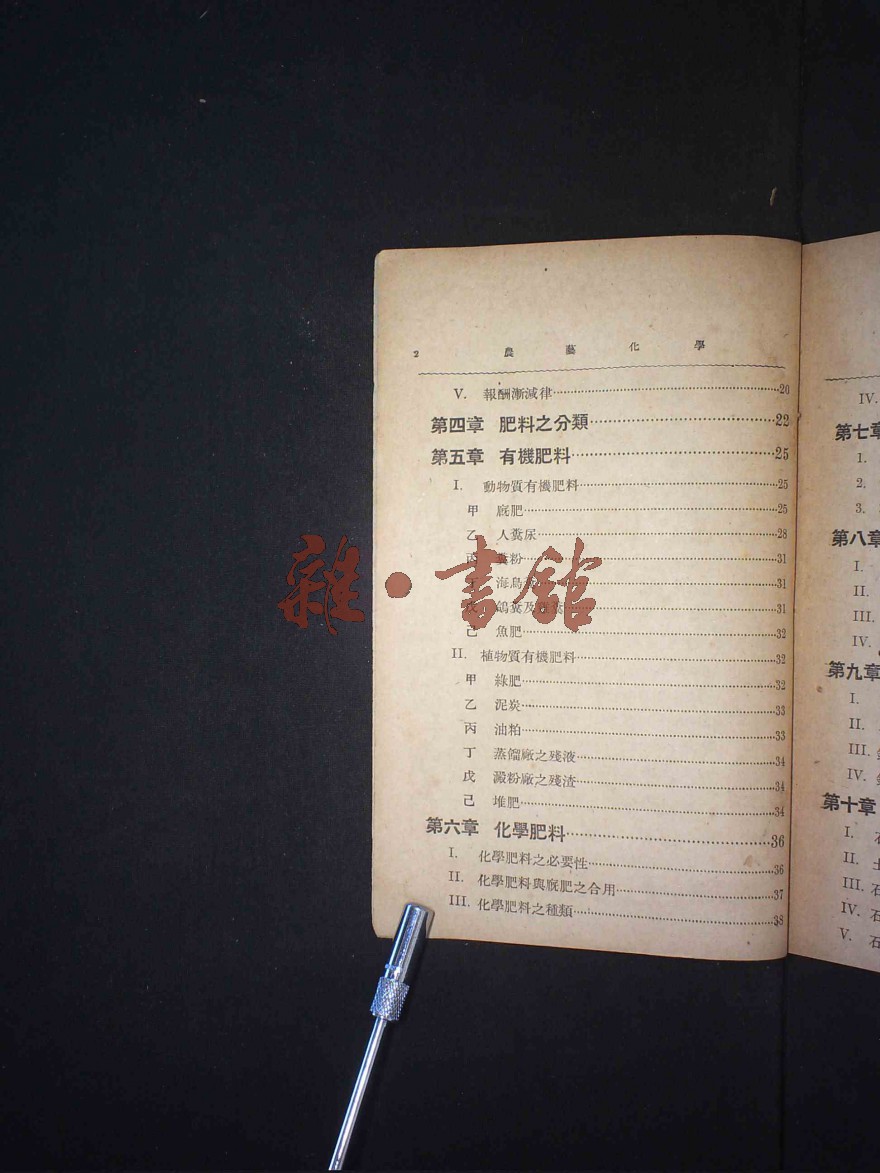 2 農藝化學
V. 報酬漸減律 20
第四章 肥料之分類 22
第五章 有機肥料 25
I. 動物質有機肥料 25
甲 廐肥 25
乙 人糞尿 28
丙 糞粉 31
丁 海鳥糞 31
戊 鴿糞及雞糞 31
己 魚肥 32
II. 植物質有機肥料 32
甲 綠肥 32
乙 泥炭 33
丙 油粕 33
丁 蒸餾廠之殘液 34
戊 澱粉廠之殘渣 34
己 堆肥 34
第六章 化學肥料 36
I. 化學肥料之必要性 36
II. 化學肥料與廐肥之合用 37
III. 化學肥料之種類 38
雜·書館
IV.
第七章
1.
2.
3.
第八章
I.
II.
III.
IV.
第九章
I.
II.
III.
IV.
第十章
I. 石
II. 土
III. 石
IV. 石
V. 石